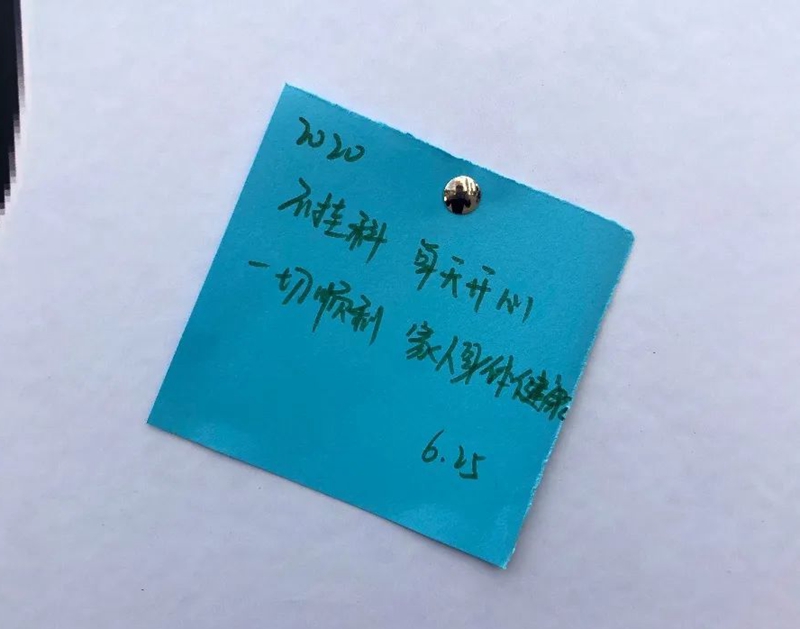 2020
不挂科 每天开心
一切顺利 家人身体健康
6.25